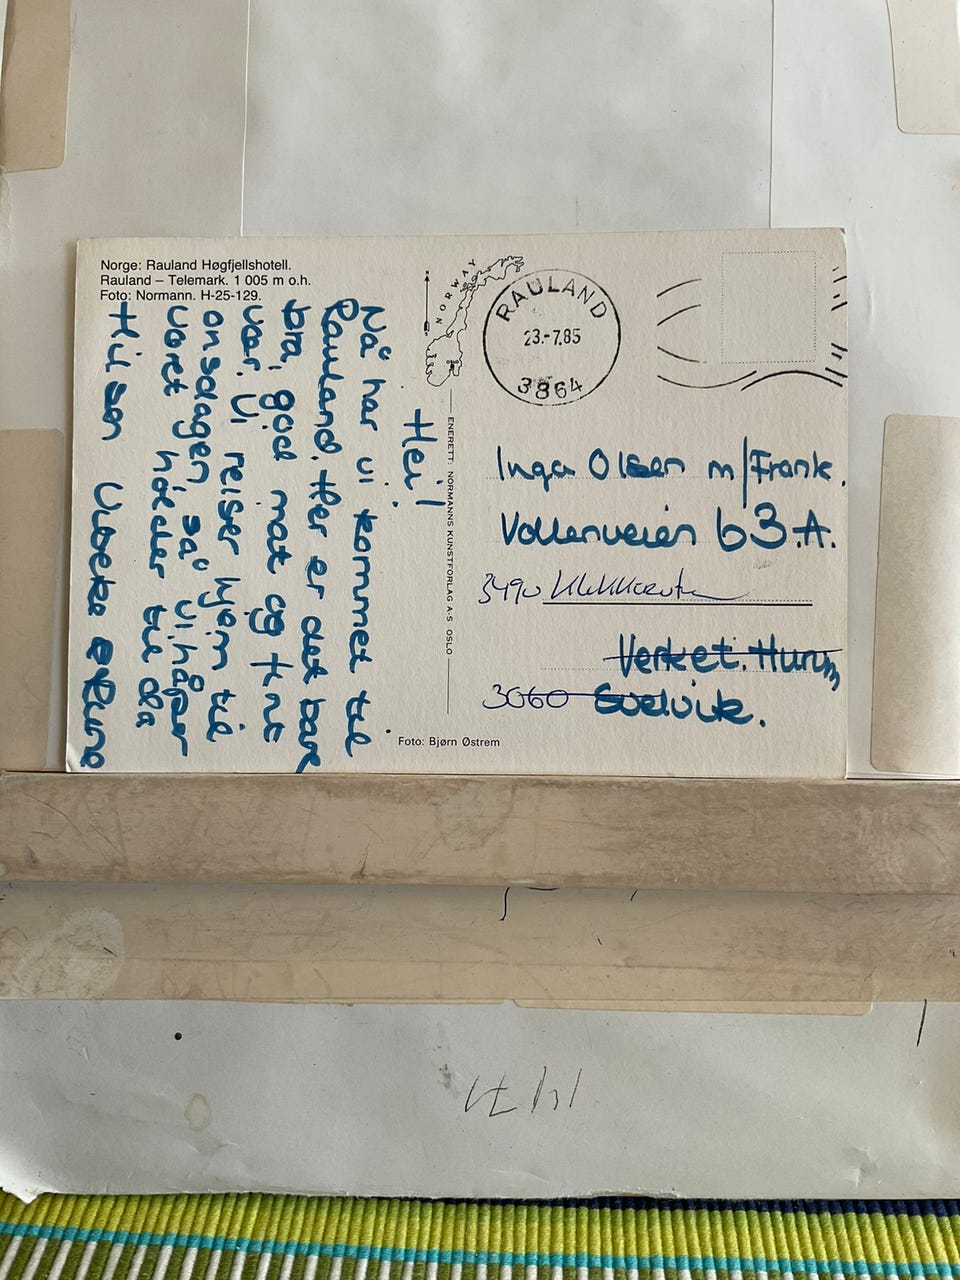 Norge: Rauland Høgfjellshotell.
Rauland – Telemark. 1 005 m o.h.
Foto: Normann. H-25-129.
Hei!
Nå har vi kommet til
Rauland. Her er det bare
bra, god mat og fint
vær. Vi reiser hjem til
onsdagen, så vi håper
været holder til da
Hilsen Vibeke & Rune
NORWAY
ENERETT: NORMANNS KUNSTFORLAG A·S OSLO
Foto: Bjørn Østrem
RAULAND
23.-7.85
3864
Inga Olsen m/Frank.
Vollenveien 63.A.
3490 Klokkarstua
Verket. Hurum
3060 Svelvik.